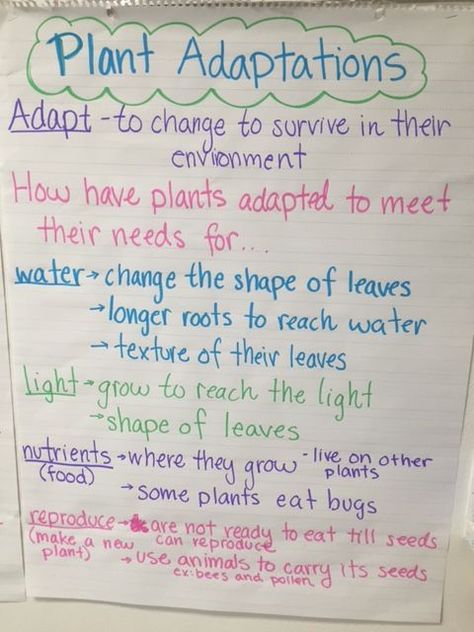 Plant Adaptations
Adapt - to change to survive in their
environment
How have plants adapted to meet
their needs for...
water → change the shape of leaves
→ longer roots to reach water
→ texture of their leaves
light → grow to reach the light
→ shape of leaves
nutrients → where they grow - live on other
(food) plants
→ some plants eat bugs
reproduce → are not ready to eat till seeds
(make a new can reproduce
plant) → use animals to carry its seeds
ex: bees and pollen